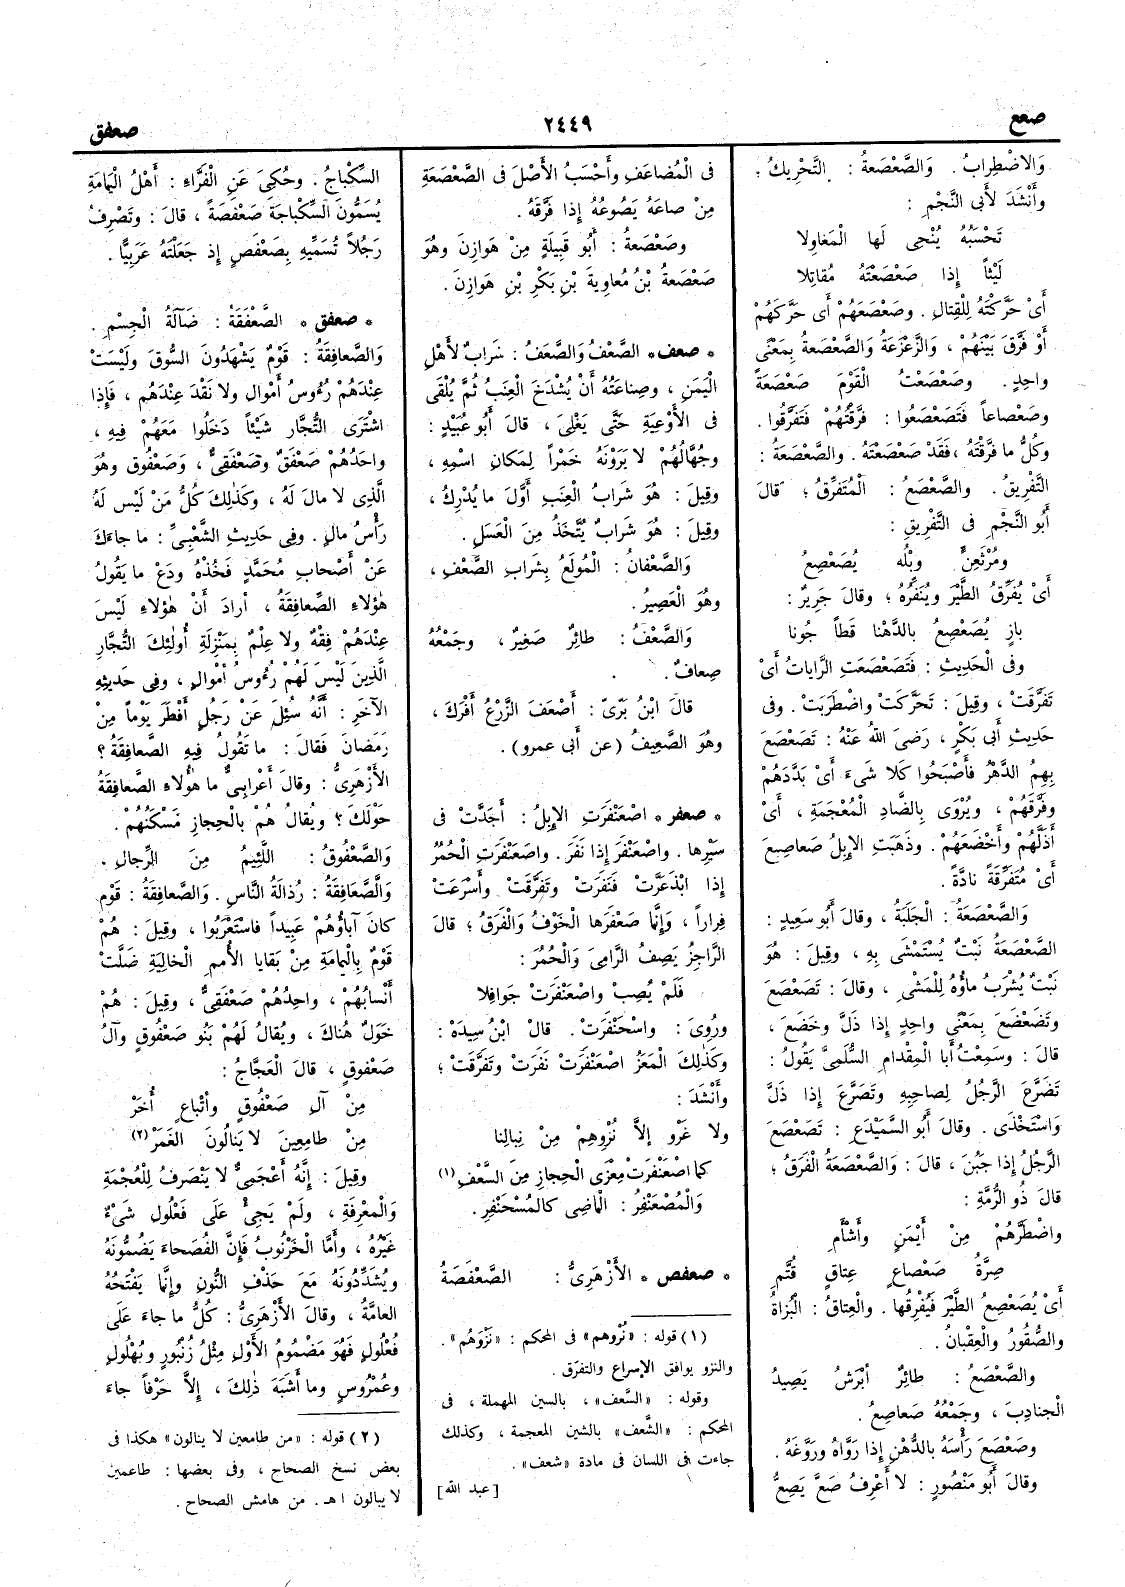 صعع
٢٤٤٩
صعفق
وَالاضْطِرابُ . وَالصَّعْصَعةُ : التَّحْرِيكُ ؛
وأَنْشَدَ لأَبى النَّجْمِ :
تَحْسَبُهُ يُنْحِى لَها الْمَغاوِلا
لَيْثاً إِذا صَعْصَعْتَهُ مُقاتِلا
أَىْ حَرَّكتْهُ لِلْقِتالِ . وصَعْصَعَهُمْ أَى حَرَّكَهُمْ
أَوْ فَرَّقَ بَيْنَهُمْ ، وَالزَّعْزَعَةُ وَالصَّعْصَعةُ بِمَعْنًى
واحِدٍ . وصَعْصَعْتُ الْقَوْمَ صَعْصَعَةً
وصَعْصاعاً فَتَصَعْصَعُوا : فَرَّقْتُهُمْ فَتَفَرَّقُوا .
وكُلُّ ما فَرَّقْتَهُ ، فَقَدْ صَعْصَعْتَهُ . والصَّعْصَعَةُ :
التَّفْرِيقُ . والصَّعْصَعُ : الْمُتَفَرِّقُ ؛ قالَ
أَبُو النَّجْمِ فى التَّفْرِيقِ :
ومُرْثَعِنٍّ وبْلُه يُصَعْصِعُ
أَىْ يُفَرِّقُ الطَّيْرَ ويُنَفِّرُهُ ؛ وقالَ جَرِيرٌ :
بازٍ يُصَعْصِعُ بِالدَّهْنا قَطاً جُونا
وفى الْحَدِيثِ : فَتَصَعْصَعَتِ الرَّاياتُ أَىْ
تَفَرَّقَتْ ، وقِيلَ : تَحَرَّكَتْ واضْطَرَبَتْ . وفى
حَدِيثِ أَبى بَكْرٍ ، رَضِىَ اللهُ عَنْهُ : تَصَعْصَعَ
بِهِمُ الدَّهْرُ فَأَصْبَحُوا كَلا شَىءَ أَىْ بَدَّدَهُمْ
وفَرَّقَهُمْ ، ويُرْوَى بِالضَّادِ الْمُعْجَمَةِ ، أَىْ
أَذَلَّهُمْ وأَخْضَعَهُمْ . وذَهَبَتِ الإِبِلُ صَعاصِعَ
أَىْ مُتَفَرِّقَةً نادَّةً .
وَالصَّعْصَعَةُ : الْجَلَبَةُ ، وقالَ أَبُو سَعِيدٍ :
الصَّعْصَعَةُ نَبْتٌ يُسْتَمْشَى بِهِ ، وقِيلَ : هُوَ
نَبْتٌ يُشْرَبُ ماؤُهُ لِلْمَشْىِ ، وقالَ : تَصَعْصَعَ
وتَضَعْضَعَ بِمَعْنًى واحِدٍ إِذا ذَلَّ وخَضَعَ ،
قالَ : وسَمِعْتُ أَبا الْمِقْدامِ السُّلَمِىَّ يَقُولُ :
تَضَرَّعَ الرَّجُلُ لِصاحِبِهِ وتَصَرَّعَ إِذا ذَلَّ
وَاسْتَخْذَى . وقالَ أَبُو السَّمَيْدَعِ : تَصَعْصَعَ
الرَّجُلُ إِذا جَبُنَ ، قالَ : وَالصَّعْصَعَةُ الْفَرَقُ ؛
قالَ ذُو الرُّمَّةِ :
واضْطَرَّهُمْ مِنْ أَيْمَنٍ وأَشْأَمِ
صِرَّةُ صَعْصاعٍ عِتاقٍ قُتَّمِ
أَىْ يُصَعْصِعُ الطَّيْرَ فَيُفْرِقُها . والْعِتاقُ : الْبُزاةُ
والصُّقُورُ والْعِقْبانُ .
والصَّعْصَعُ : طائِرٌ أَبْرَشُ يَصِيدُ
الْجنادِبَ ، وجَمْعُهُ صَعاصِعُ .
وصَعْصَعَ رَأْسَهُ بالدُّهْنِ إِذا رَوَّاهُ ورَوَّغَهُ .
وقالَ أَبُو مَنْصُورٍ : لا أَعْرِفُ صَعَّ يَصِعُّ
فى الْمُضاعَفِ وأَحْسَبُ الأَصْلَ فى الصَّعْصَعَةِ
مِنْ صاعَهُ يَصُوعُهُ إِذا فَرَّقَهُ .
وصَعْصَعةُ : أَبُو قَبِيلَةٍ مِنْ هَوازِنَ وهُوَ
صَعْصَعَةُ بْنُ مُعاوِيةَ بْنِ بَكْرِ بْنِ هَوازِنَ .
* صعف * الصَّعْفُ وَالصَّعَفُ : شَرابٌ لأَهْلِ
الْيَمَنِ ، وصِناعَتُهُ أَنْ يُشْدَخَ الْعِنَبُ ثُمَّ يُلْقَى
فى الأَوْعِيَةِ حَتَّى يَغْلِىَ ، قالَ أَبُو عُبَيْدٍ :
وجُهَّالُهُمْ لا يَرَوْنَهُ خَمْراً لِمَكانِ اسْمِهِ ،
وقِيلَ : هُوَ شَرابُ الْعِنَبِ أَوَّلَ ما يُدْرِكُ ،
وقِيلَ : هُوَ شَرابٌ يُتَّخَذُ مِنَ الْعَسَلِ .
وَالصَّعْفانُ : الْمُولَعُ بِشَرابِ الصَّعْفِ ،
وهُوَ الْعَصِيرُ .
وَالصَّعْفُ : طائِرٌ صَغِيرٌ ، وجَمْعُهُ
صِعافٌ .
قالَ ابْنُ بَرِّىّ : أَصْعَفَ الزَّرْعُ أَفْرَكَ ،
وهُوَ الصَّعِيفُ (عن أبى عمرو) .
* صعفر * اصْعَنْفَرَتِ الإِبِلُ : أَجَدَّتْ فى
سَيْرِها . واصْعَنْفَرَ إِذا نَفَرَ . واصْعَنْفَرَتِ الْحُمُرُ
إِذا ابْذَعَرَّتْ فَنَفَرَتْ وتَفَرَّقَتْ وأَسْرَعَتْ
فِراراً ، وَإِنَّما صَعْفَرَها الْخَوْفُ وَالْفَرَقُ ؛ قالَ
الرَّاجِزُ يَصِفُ الرَّامِىَ وَالْحُمُرَ :
فَلَمْ يُصِبْ واصْعَنْفَرَتْ جَوافِلا
ورُوِىَ : واسْحَنْفَرَتْ . قالَ ابْنُ سِيدَهْ :
وكَذٰلِكَ الْمَعَزُ اصْعَنْفَرَتْ نَفَرَتْ وتَفَرَّقَتْ ؛
وأَنْشَدَ :
ولا غَرْوَ إِلاَّ نُزْوِهِمْ مِنْ نِبالِنا
كما اصْعَنْفَرَتْ مِعْزَى الْحِجازِ مِنَ السَّعْفِ (١)
وَالْمُصْعَنْفِرُ : الْماضِى كالمُسْحَنْفِرِ .
* صعفص * الأَزْهَرِىُّ : الصَّعْفَصَةُ
(١) قوله : «نُزْوهم» فى المحكم : «نَزْوَهُم» .
والنزو يوافق الإسراع والتفرّق .
وقوله : «السَّعف» ، بالسين المهملة ، فى
المحكم : «الشَّعف» بالشين المعجمة ، وكذلك
جاءت فى اللسان فى مادة «شعف» .
[عبد الله]
السِّكْباجُ . وحُكِىَ عَنِ الْفَرَّاءِ : أَهْلُ الْيَمامَةِ
يُسَمُّونَ السِّكْباجَةَ صَعْفَصَةً ، قالَ : وتَصْرِفُ
رَجُلاً تُسَمِّيهِ بِصَعْفَصٍ إِذ جَعَلْتَهُ عَرَبِيًّا .
* صعفق * الصَّعْفَقَةُ : ضَآلَةُ الْجِسْمِ .
وَالصَّعافِقَةُ : قَوْمٌ يَشْهَدُونَ السُّوقَ وَلَيْسَتْ
عِنْدَهُمْ رُءُوسُ أَمْوالٍ ولا نَقْدَ عِنْدَهُم ، فَإِذا
اشْتَرَى التُّجَّارُ شَيْئاً دَخَلُوا مَعَهُمْ فِيهِ ،
واحِدُهُمْ صَعْفَقٌ وصَعْفَقِىٌّ ، وَصَعْفُوقٌ وهُوَ
الَّذِى لا مالَ لَهُ ، وكَذٰلِكَ كُلُّ مَنْ لَيْسَ لَهُ
رَأْسُ مالٍ . وفِى حَدِيثِ الشَّعْبِىِّ : ما جاءَكَ
عَنْ أَصْحابِ مُحَمَّدٍ فَخُذْهُ ودَعْ ما يَقُولُ
هٰؤلاءِ الصَّعافِقَةُ ، أَرادَ أَنَّ هٰؤلاءِ لَيْسَ
عِنْدَهُمْ فِقْهٌ ولا عِلْمٌ بِمَنْزِلَةِ أُولٰئِكَ التُّجَّارِ
الَّذِينَ لَيْسَ لَهُمْ رُءُوسُ أَمْوالٍ ، وفِى حَدِيثِهِ
الآخَرِ : أَنَّهُ سُئِلَ عَنْ رَجُلٍ أَفْطَرَ يَوْماً مِنْ
رَمَضانَ فَقالَ : ما تَقُولُ فِيهِ الصَّعافِقَةُ ؟
الأَزْهَرِىُّ : وقالَ أَعْرابِىٌّ ما هٰؤُلاءِ الصَّعافِقَةُ
حَوْلَكَ ؟ ويُقالُ هُمْ بِالْحِجازِ مَسْكَنُهُمْ .
وَالصَّعْفُوقُ : اللَّئِيمُ مِنَ الرِّجالِ .
وَالصَّعافِقَةُ : رُذالَةُ النَّاسِ . وَالصَّعافِقَةُ : قَوْمٌ
كانَ آباؤُهُمْ عَبِيداً فاسْتَعْرَبُوا ، وقِيلَ : هُمْ
قَوْمٌ بِالْيَمامَةِ مِنْ بَقايا الأُممِ الْخالِيَةِ ضَلَّتْ
أَنْسابُهُمْ ، واحِدُهُمْ صَعْفَقِىٌّ ، وقِيلَ : هُمْ
خَوَلٌ هُناكَ ، ويُقالُ لَهُمْ بَنُو صَعْفُوقٍ وآلُ
صَعْفُوقٍ ، قالَ الْعَجَّاجُ :
مِنْ آلِ صَعْفُوقٍ وأَتْباعٍ أُخَرْ
مِنْ طامِعِينَ لا يَنالُونَ الْغَمَرْ (٢)
وقِيلَ : إِنَّهُ أَعْجَمِىٌّ لا يَنْصَرِفُ لِلْعُجْمَةِ
وَالْمَعْرِفَةِ ، ولَمْ يَجِئْ عَلَى فَعْلُولٍ شَىْءٌ
غَيْرُهُ ، وأَمَّا الْخَرْنُوبُ فَإِنَّ الْفُصَحاءَ يَضُمُّونَهُ
ويُشَدِّدُونَهُ مَعَ حَذْفِ النُّونِ وإِنَّما يَفْتَحُهُ
العامَّةُ ، وقالَ الأَزْهَرِىُّ : كُلُّ ما جاءَ عَلَى
فُعْلُولٍ فَهُوَ مَضْمُومُ الأَوَّلِ مِثْلُ زُنْبُورٍ وبُهْلُولٍ
وعُمْرُوسٍ وما أَشْبَهَ ذٰلِكَ ، إِلاَّ حَرْفاً جاءَ
(٢) قوله : «من طامعين لا ينالون» هكذا فى
بعض نسخ الصحاح ، وفى بعضها : طاعمين
لا يبالون ا هـ . من هامش الصحاح .